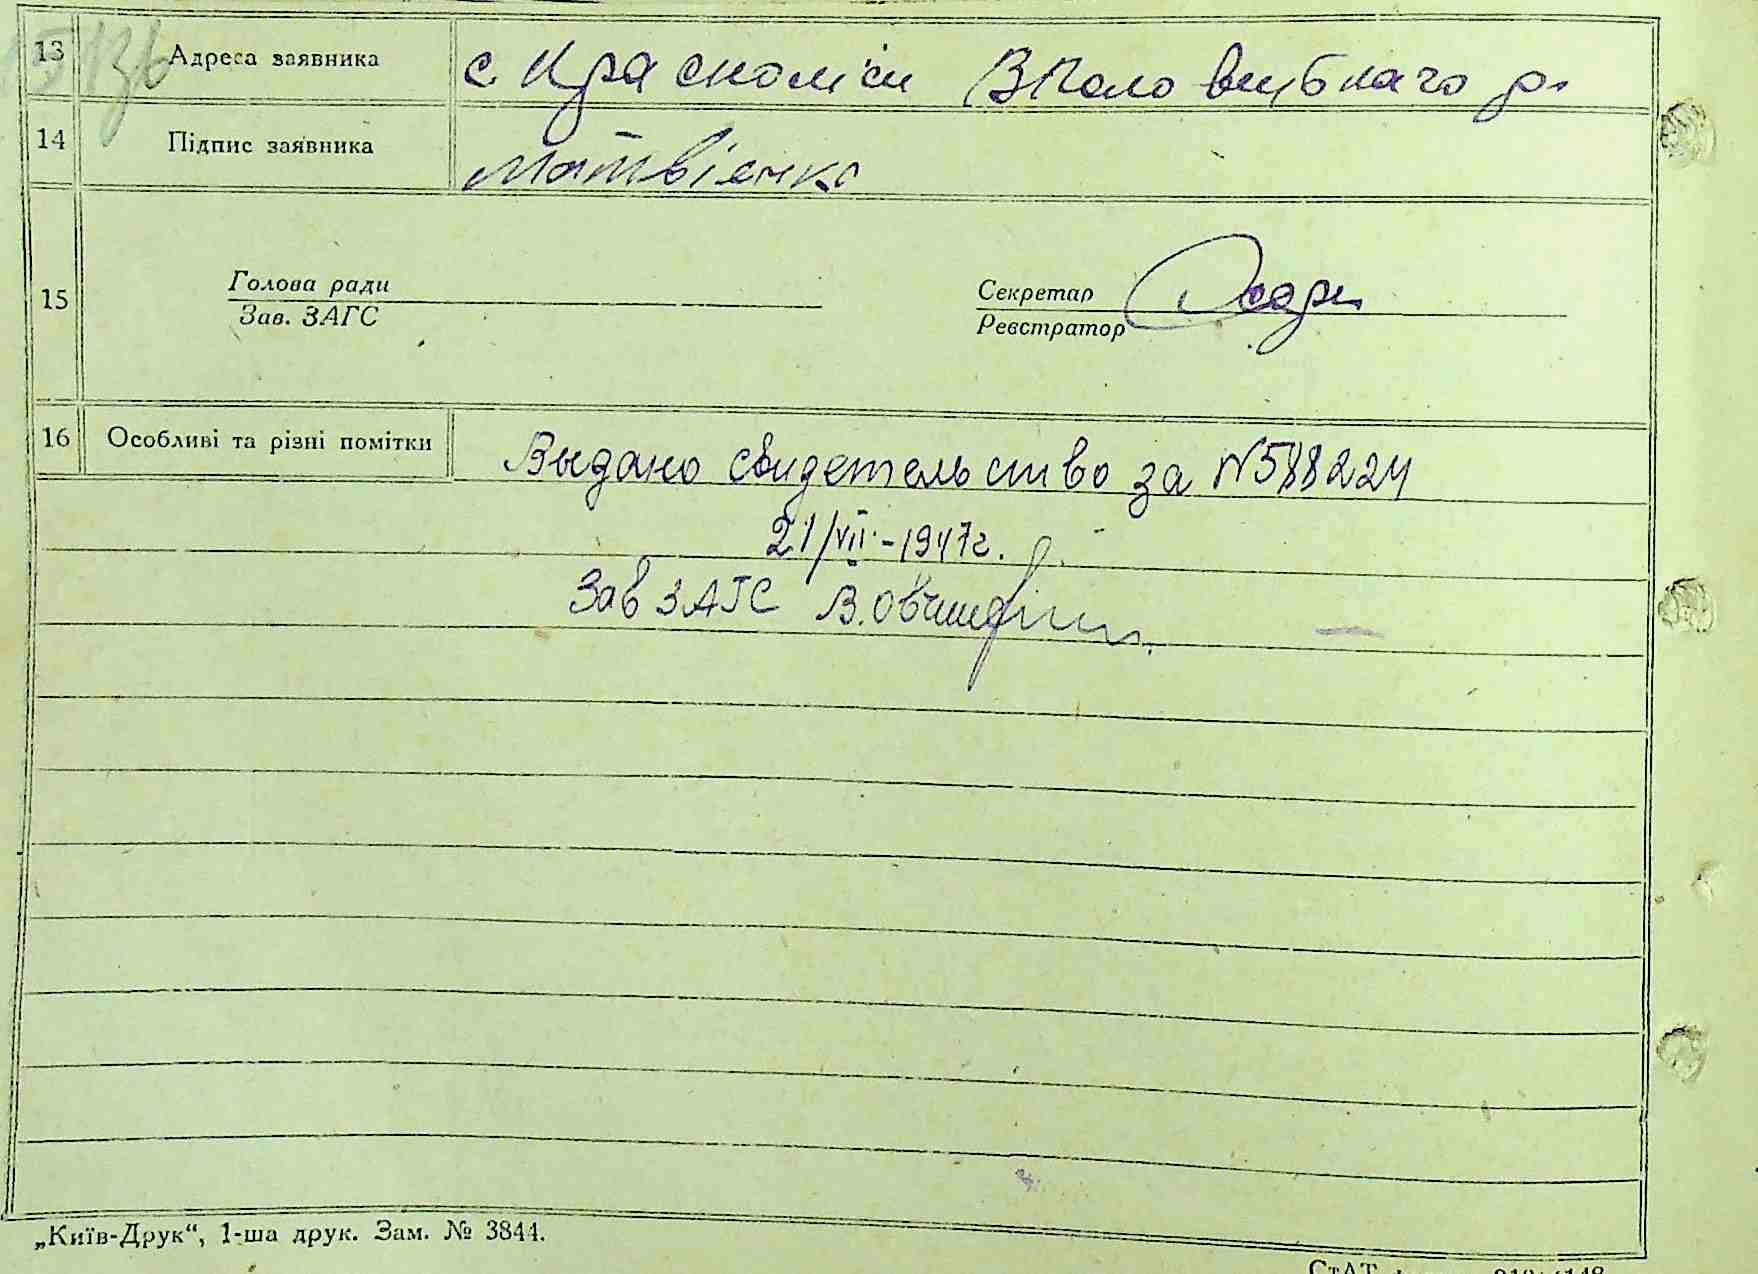 13 Адреса заявника с Красноліси В Половецького р.
14 Підпис заявника Матвієнко
15
Голова ради
Зав. ЗАГС
Секретар
Реєстратор
16 Особливі та різні помітки Выдано свидетельство за №588224
21/VII-1947г.
Зав ЗАГС
„Київ-Друк“, 1-ша друк. Зам. № 3844.